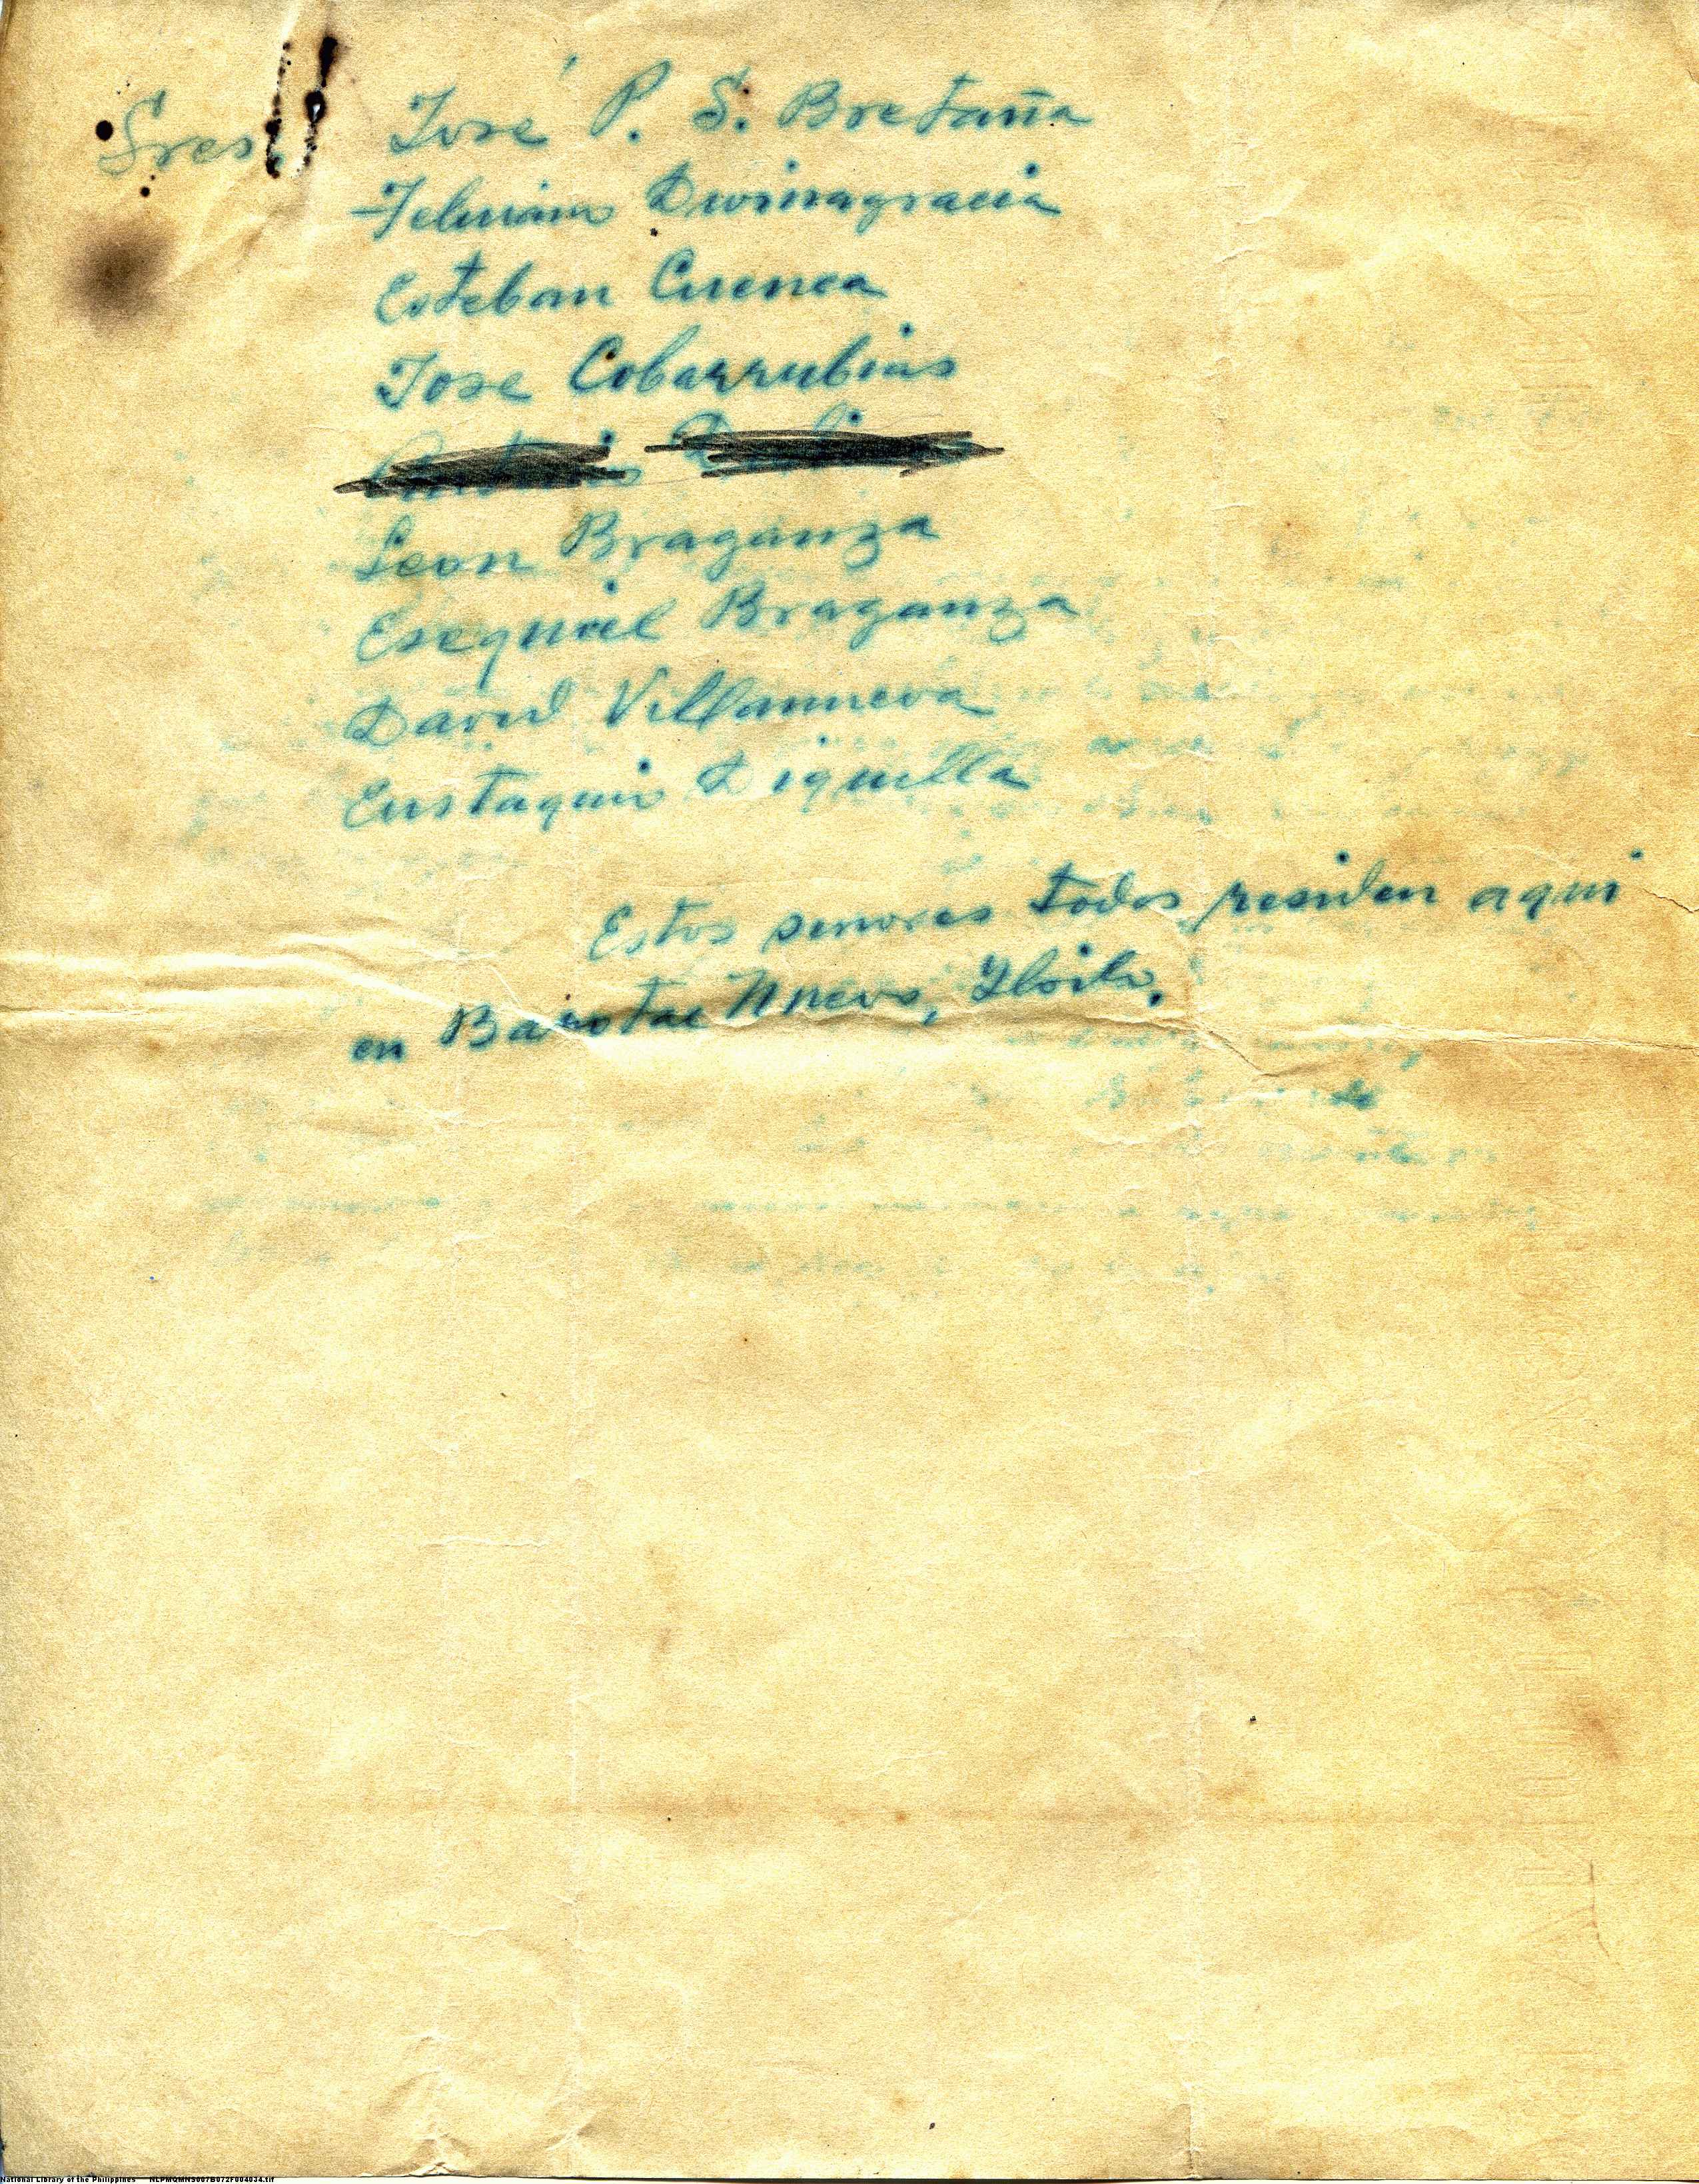 Sres. José P. S. Bretaña
Feliciano Divinagracia
Esteban Cuenca
Jose Cobarrubias
Leon Braganza
Esequiel Braganza
David Villanueva
Eustaquio Diquilla
Estos senores todos residen aqui
en Barotac Nuevo, Yloilo.
National Library of the Philippines